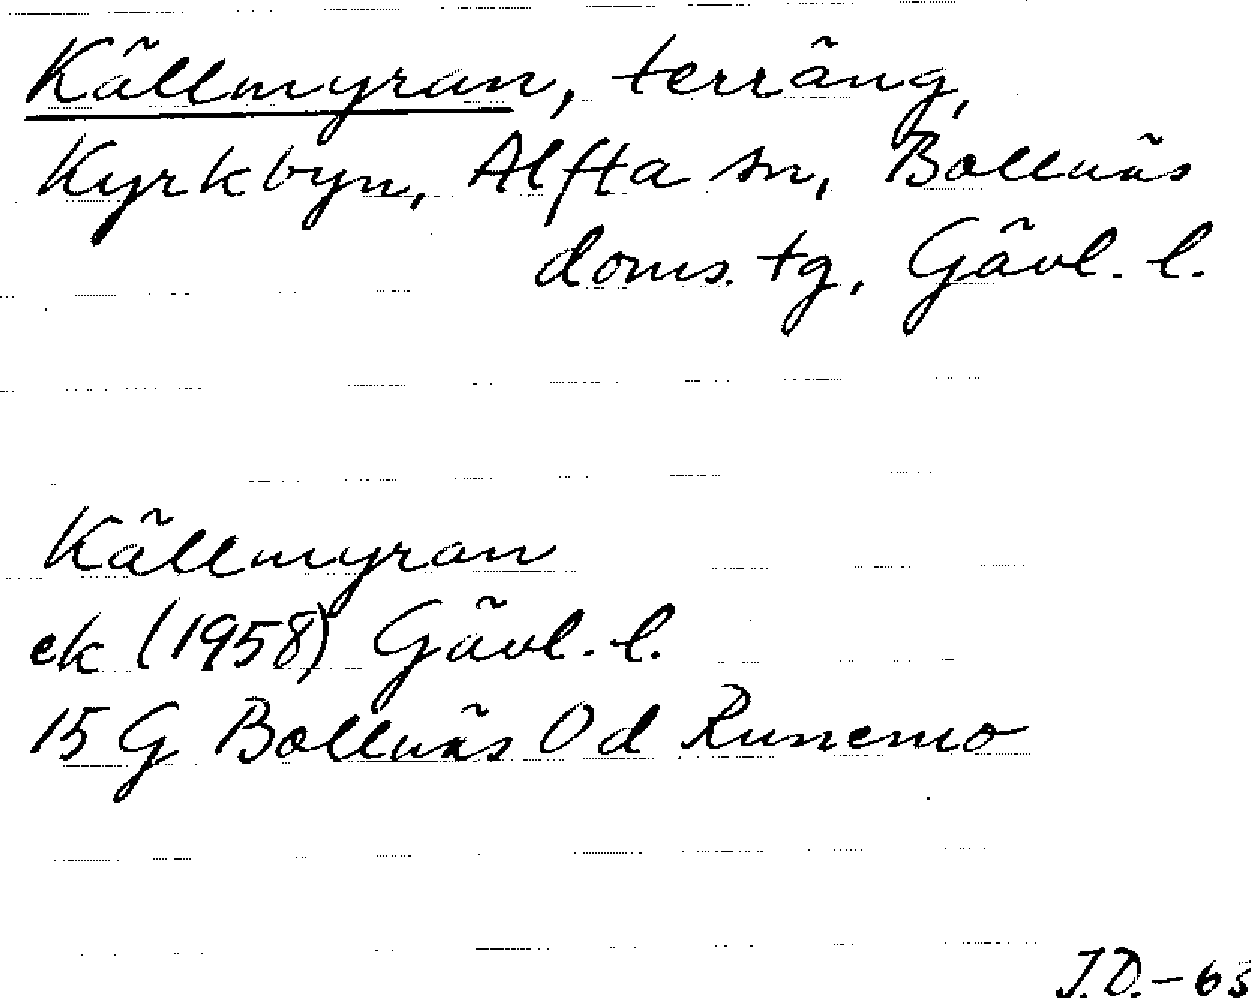 Källmyran, terräng,
Kyrkbyn, Alfta sn, Bollnäs
doms. tg, Gävl. l.
Källmyran
ek (1958) Gävl. l.
15 G Bollnäs Od Runemo
J.D. - 63